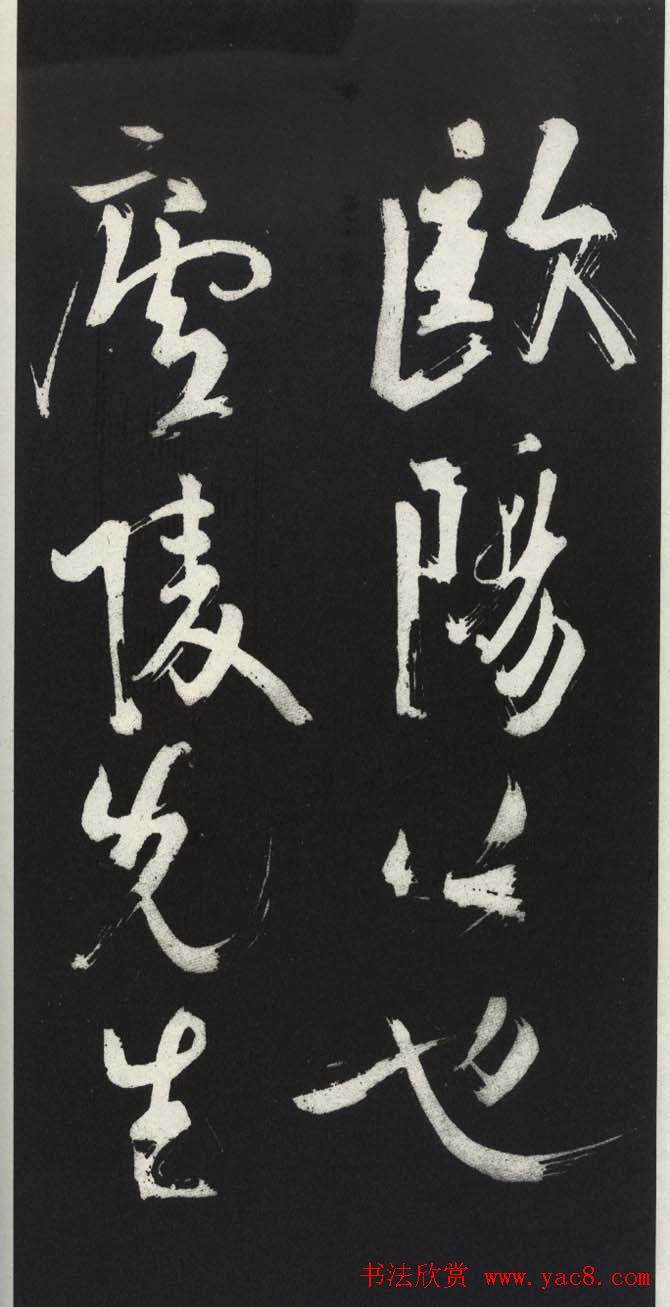 歐陽公也
廬陵先生
书法欣赏 www.yac8.com